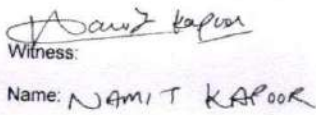 Namit Kapoor
Witness:
Name: NAMIT KAPOOR